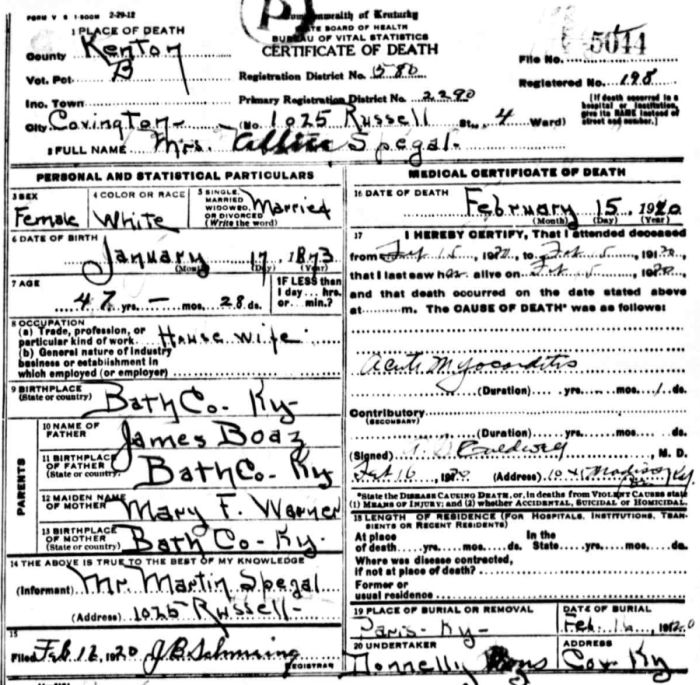 FORM V S 1-500M 2-29-12
Commonwealth of Kentucky
STATE BOARD OF HEALTH
BUREAU OF VITAL STATISTICS
CERTIFICATE OF DEATH
1 PLACE OF DEATH
County Kenton
Vot. Pct. B
Inc. Town
City Covington
Registration District No. 580
Primary Registration District No. 2290
(No. 1025 Russell St., 4 Ward)
File No. 5044
Registered No. 198
[If death occurred in a hospital or institution, give its NAME instead of street and number.]
2 FULL NAME Mrs. Spegal
PERSONAL AND STATISTICAL PARTICULARS
3 SEX
Female
4 COLOR OR RACE
White
5 SINGLE, MARRIED WIDOWED, OR DIVORCED (Write the word)
Married
6 DATE OF BIRTH
January 17, 1873
(Month) (Day) (Year)
7 AGE
47 yrs. — mos. 28 ds.
IF LESS than 1 day... hrs. or ... min.?
8 OCCUPATION
(a) Trade, profession, or particular kind of work House wife
(b) General nature of industry business or establishment in which employed (or employer)
9 BIRTHPLACE (State or country)
Bath Co- Ky-
PARENTS
10 NAME OF FATHER James Boaz
11 BIRTHPLACE OF FATHER (State or country) Bath Co- Ky
12 MAIDEN NAME OF MOTHER Mary F. Warner
13 BIRTHPLACE OF MOTHER (State or country) Bath Co- Ky.
14 THE ABOVE IS TRUE TO THE BEST OF MY KNOWLEDGE
(Informant) Mr. Martin Spegal
(Address) 1025 Russell-
15
Filed Feb 12, 1920 J.B.
REGISTRAR
MEDICAL CERTIFICATE OF DEATH
16 DATE OF DEATH
February 15, 1920
(Month) (Day) (Year)
17 I HEREBY CERTIFY, That I attended deceased
from Feb 15, 1920, to Feb 5, 1920
that I last saw her alive on Feb 5, 1920
and that death occurred on the date stated above
at m. The CAUSE OF DEATH* was as follows:
Acute Myocarditis
(Duration) yrs. mos. 1 ds.
Contributory
(SECONDARY)
(Duration) yrs. mos. ds.
(Signed) M. D.
Feb 16, 1920 (Address) Madison
*State the DISEASE CAUSING DEATH, or, in deaths from VIOLENT CAUSES state (1) MEANS OF INJURY; and (2) whether ACCIDENTAL, SUICIDAL or HOMICIDAL.
18 LENGTH OF RESIDENCE (FOR HOSPITALS, INSTITUTIONS, TRANSIENTS OR RECENT RESIDENTS)
At place of death yrs. mos. ds.
In the State yrs. mos. ds.
Where was disease contracted, if not at place of death?
Former or usual residence
19 PLACE OF BURIAL OR REMOVAL
Paris- Ky-
DATE OF BURIAL
Feb. 16, 1920
20 UNDERTAKER
Donnelly Bros
ADDRESS
Cov Ky